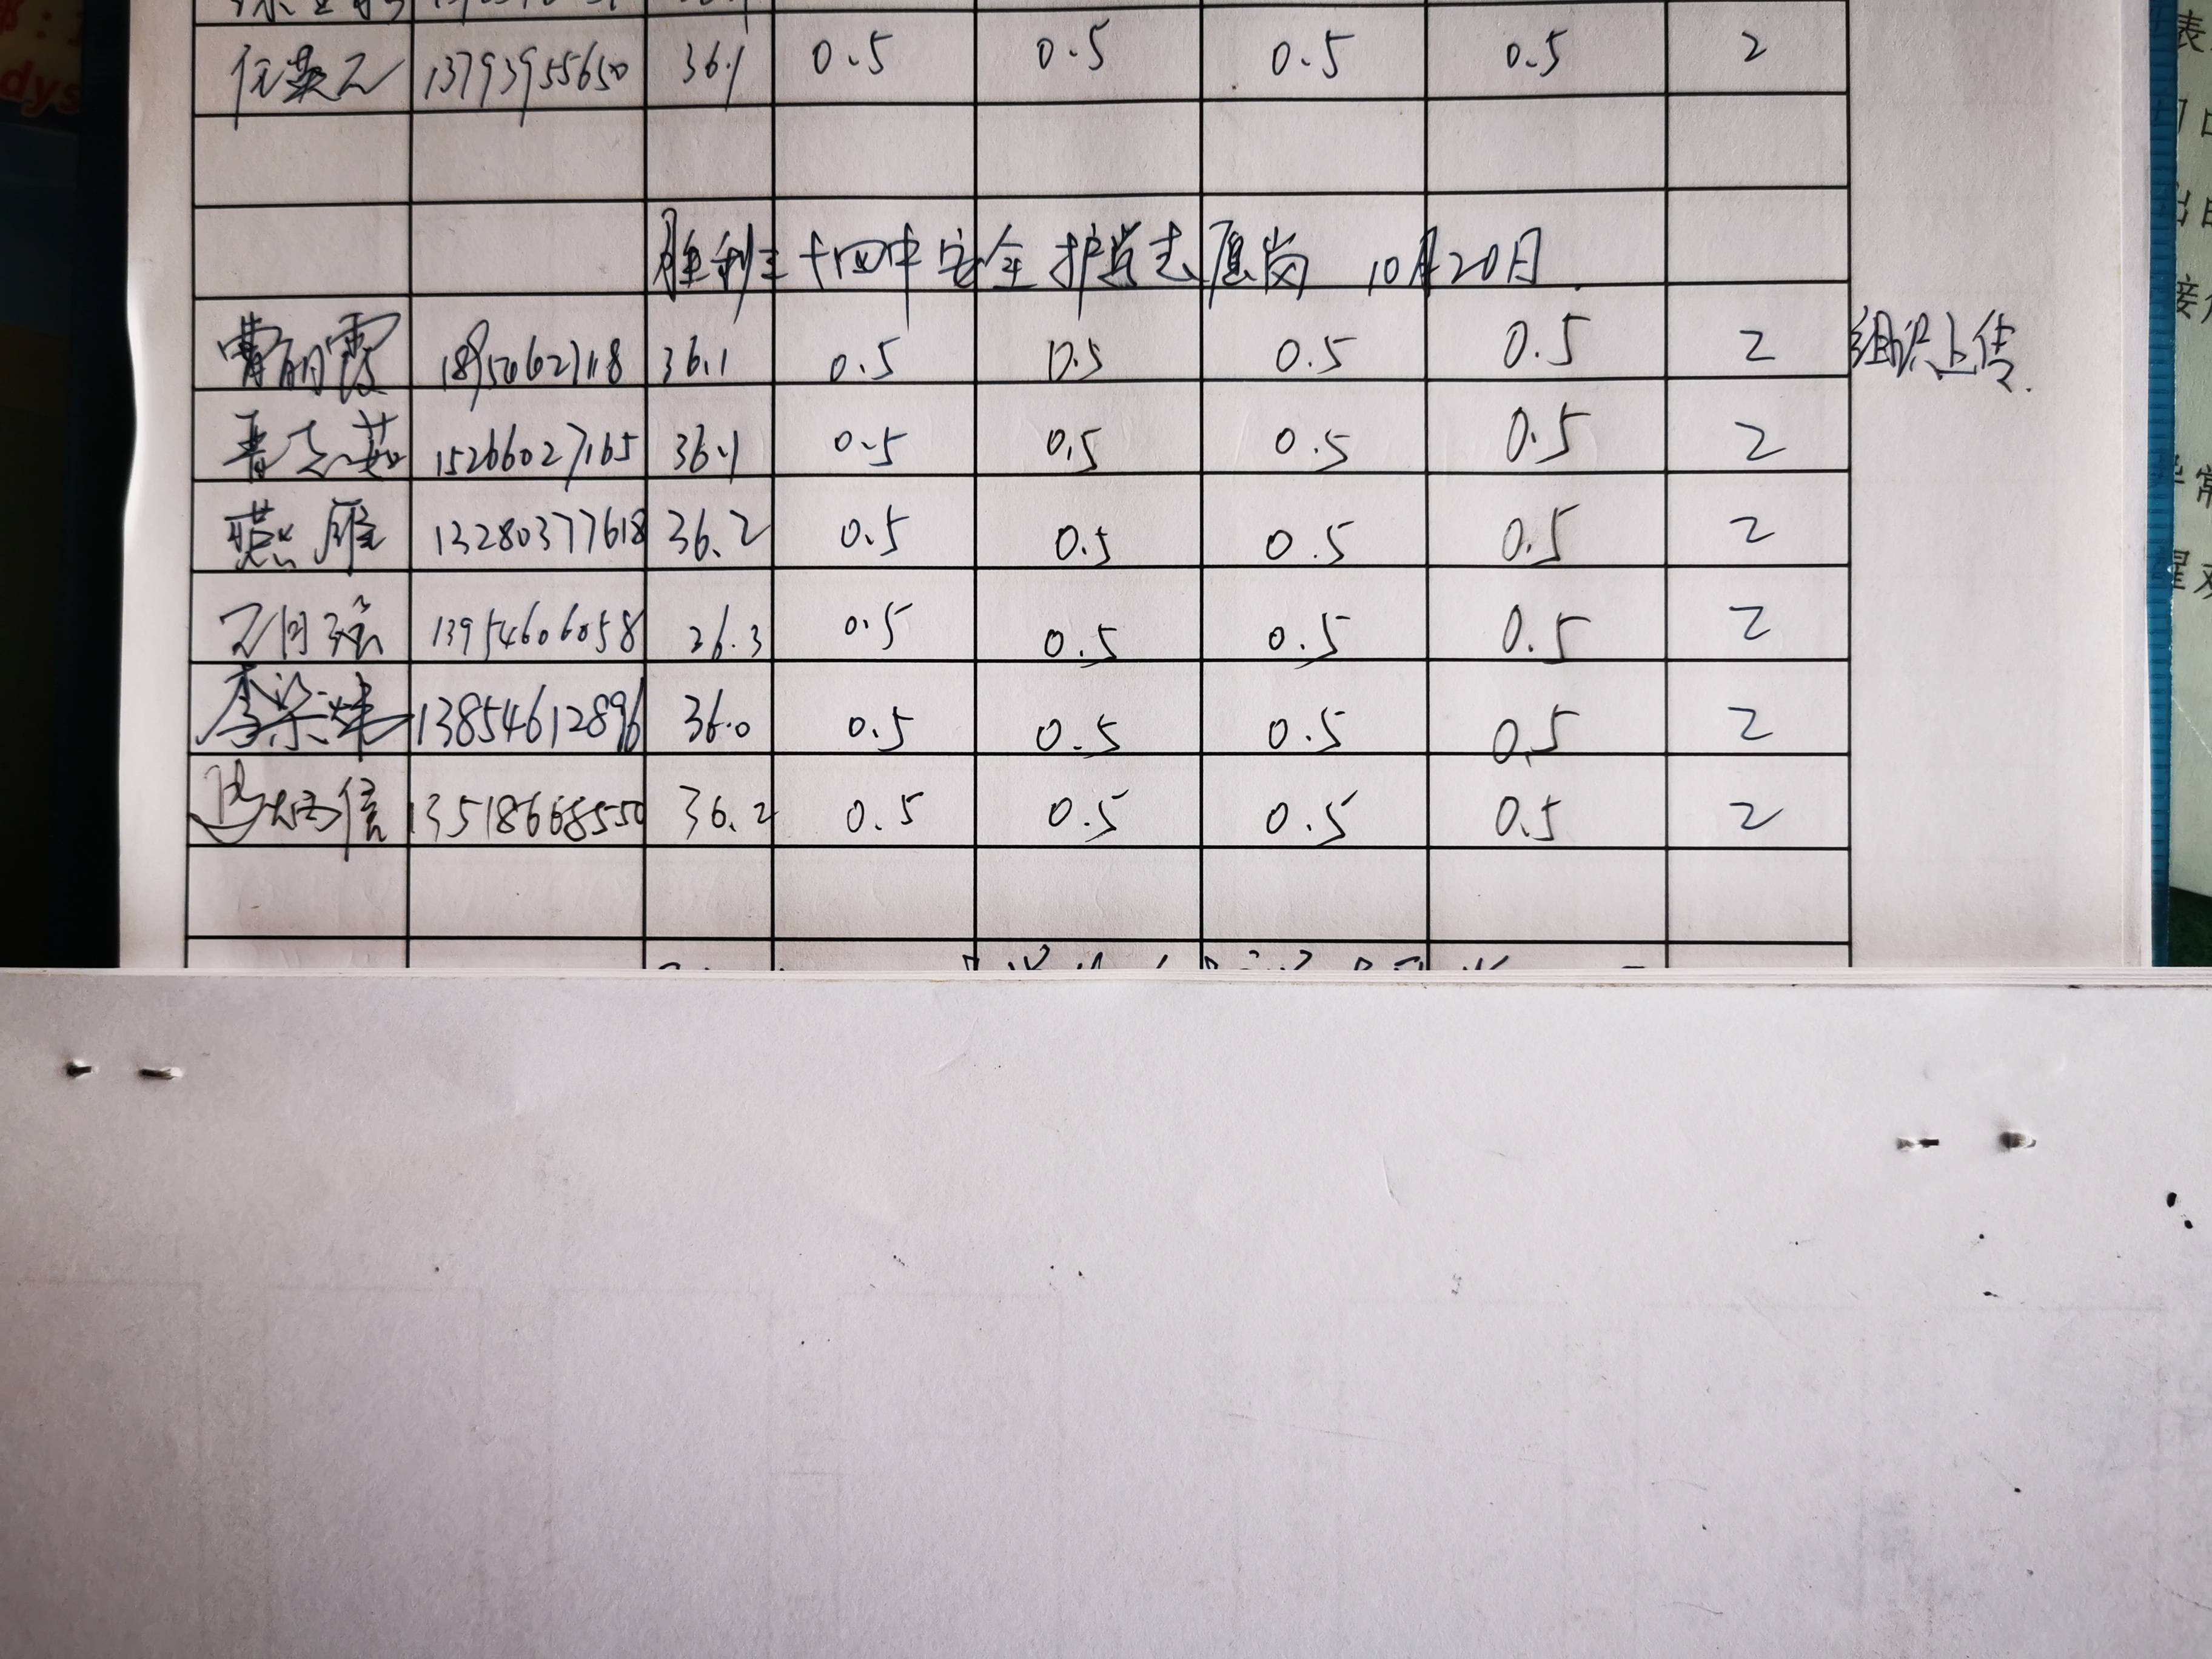 任英 13793955650 36.1 0.5 0.5 0.5 0.5 2
胜利三十四中安全护岗志愿岗 10月20日
曹丽霞 36.1 0.5 0.5 0.5 0.5 2 组织上传.
15266027165 36.1 0.5 0.5 0.5 0.5 2
燕雁 13280377618 36.2 0.5 0.5 0.5 0.5 2
13954606058 36.3 0.5 0.5 0.5 0.5 2
李梁 13854612896 36.0 0.5 0.5 0.5 0.5 2
信 13518668550 36.2 0.5 0.5 0.5 0.5 2